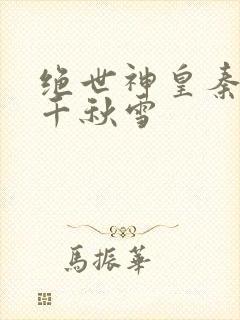 绝世神皇秦
千秋雪
馬振華